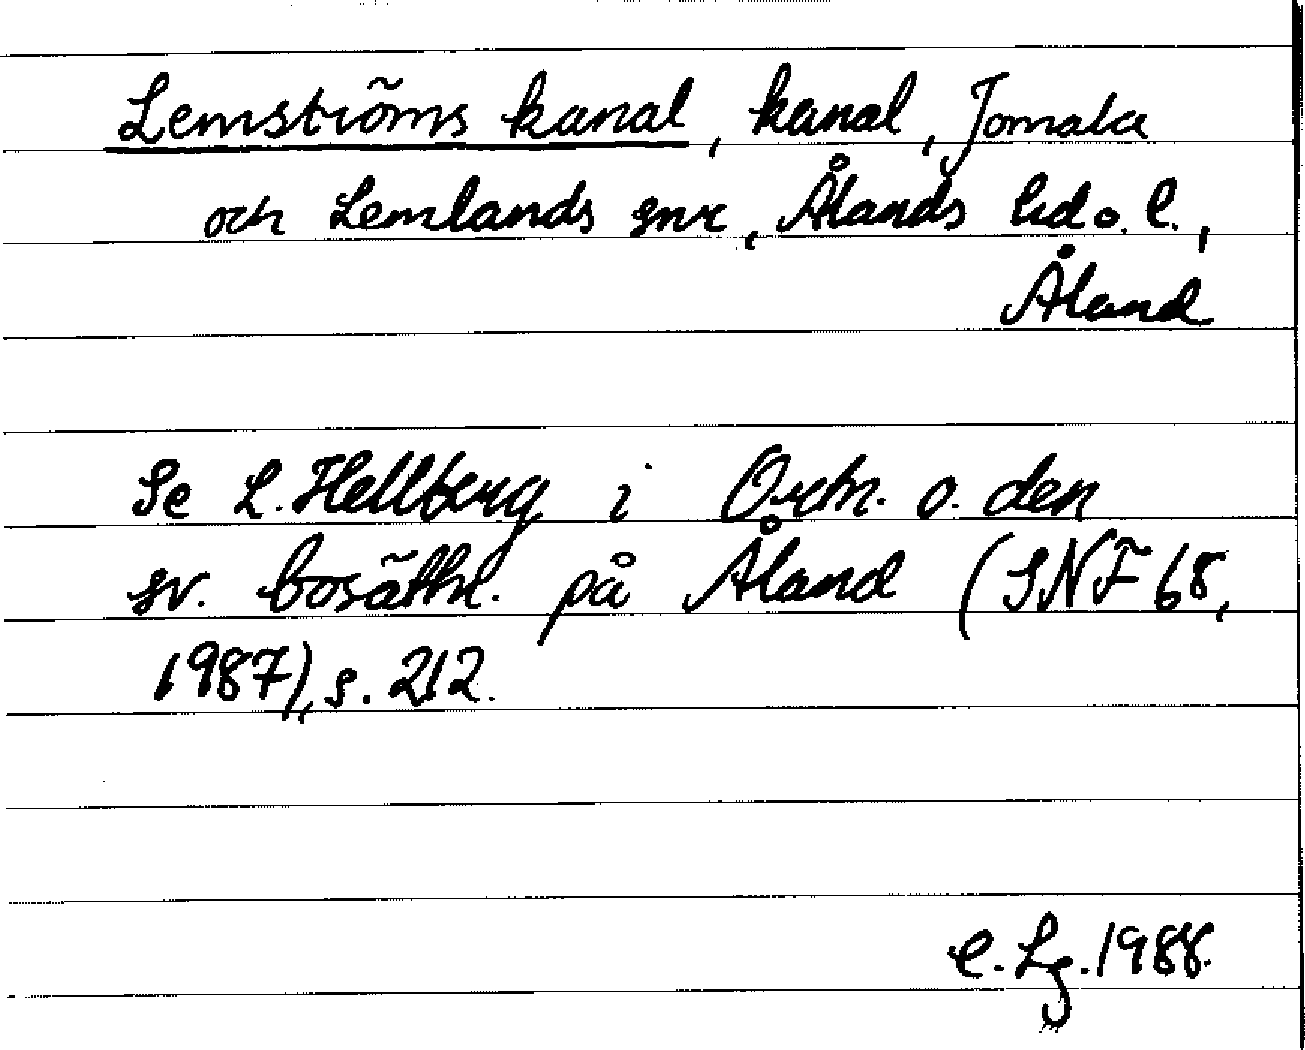 Lemströms kanal, kanal, Jomala
och Lemlands snr, Ålands hd o. l.,
Åland
Se L. Hellberg i Ortn. o. den
sv. bosättn. på Åland (SNF 68,
1987), s. 212.
C. Lg. 1988.